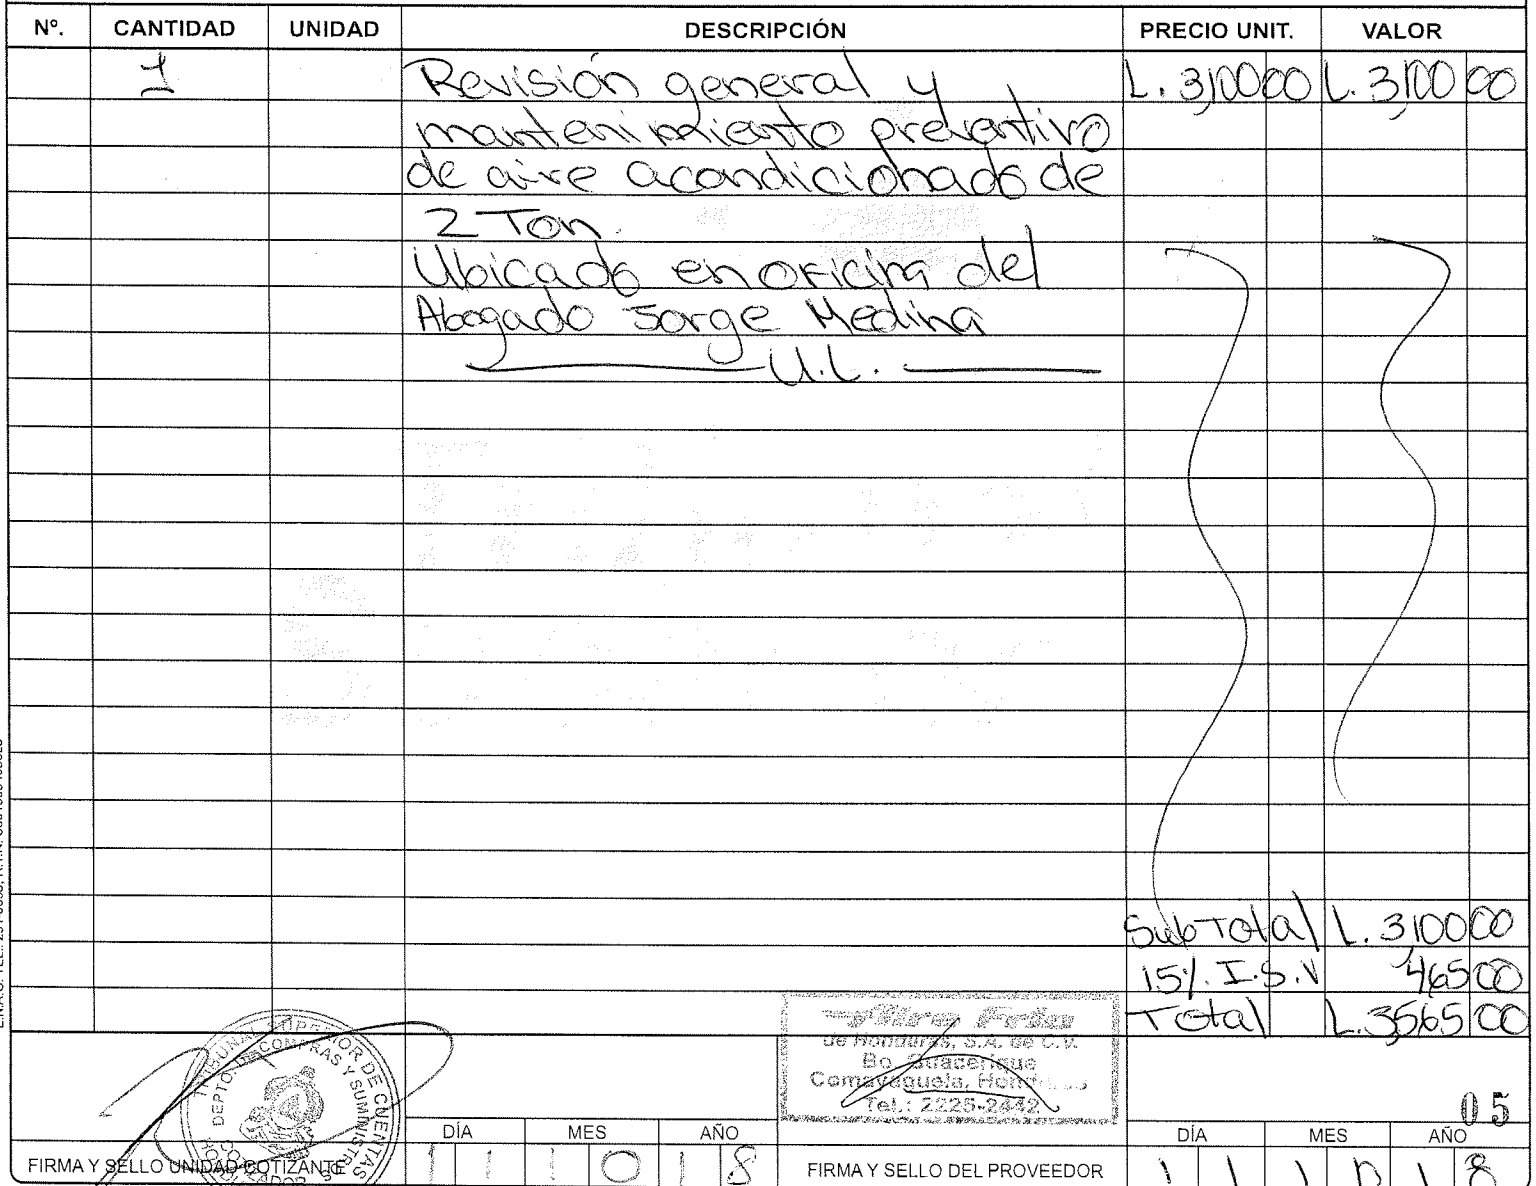 Nº. CANTIDAD UNIDAD DESCRIPCIÓN PRECIO UNIT. VALOR
1 Revisión general y L. 3,100 00 L. 3,100 00
mantenimiento preventivo
de aire acondicionado de
2 Ton.
Ubicado en oficina del
Abogado Jorge Medina
U.L.
SubTotal L. 3,100 00
15%. I.S.V 465 00
Total L. 3,565 00
TRIBUNAL SUPERIOR DE CUENTAS
DEPTO DE COMPRAS Y SUMINISTROS
COTIZADOR
Aire Frío
de Honduras, S.A. de C.V.
Bo. Guacerique
Comayaguela, Honduras
Tel.: 2225-2442
05
DÍA MES AÑO
DÍA MES AÑO
FIRMA Y SELLO UNIDAD COTIZANTE 11 10 18
FIRMA Y SELLO DEL PROVEEDOR 11 10 18